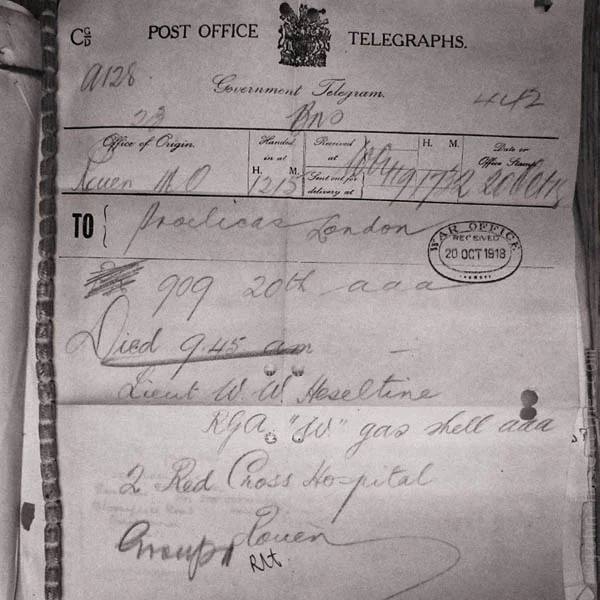 C G/D POST OFFICE TELEGRAPHS.
Government Telegram.
A128 442
23 BNO
Office of Origin. Handed in at Received at H. M. Date or Office Stamp
H. M. Sent out for delivery at
Rouen MO 1215 20 Oct 18
TO London
WAR OFFICE
RECEIVED
20 OCT 1918
909 20th aaa
Died 9.45 am
Lieut W. W. Heseltine
RGA "W" gas shell aaa
2 Red Cross Hospital
Rouen
Group